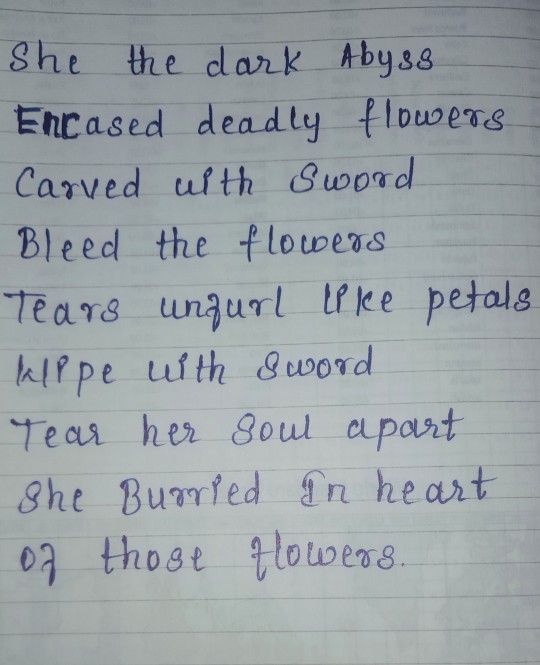 She the dark Abyss
Encased deadly flowers
Carved with Sword
Bleed the flowers
Tears unfurl like petals
Wipe with Sword
Tear her Soul apart
She Burried In heart
of those flowers.